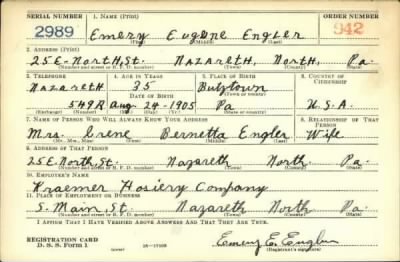 SERIAL NUMBER 1. NAME (Print) ORDER NUMBER
2989 Emery Eugene Engler 942
(First) (Middle) (Last)
2. ADDRESS (Print)
25 E-North St. Nazareth, North, Pa.
(Number and street or R. F. D. number) (Town) (County) (State)
3. TELEPHONE 4. AGE IN YEARS 5. PLACE OF BIRTH 6. COUNTRY OF CITIZENSHIP
Nazareth 35 Butztown
DATE OF BIRTH (Town or county)
549R Aug 24-1905 Pa U.S.A.
(Exchange) (Number) (Mo.) (Day) (Yr.) (State or country)
7. NAME OF PERSON WHO WILL ALWAYS KNOW YOUR ADDRESS 8. RELATIONSHIP OF THAT PERSON
Mrs. Irene Bernetta Engler Wife
(Mr., Mrs., Miss) (First) (Middle) (Last)
9. ADDRESS OF THAT PERSON
25 E. North St. Nazareth North Pa.
(Number and street or R. F. D. number) (Town) (County) (State)
10. EMPLOYER'S NAME
Kraemer Hosiery Company
11. PLACE OF EMPLOYMENT OR BUSINESS
S. Main St. Nazareth North Pa
(Number and street or R. F. D. number) (Town) (County) (State)
I AFFIRM THAT I HAVE VERIFIED ABOVE ANSWERS AND THAT THEY ARE TRUE.
REGISTRATION CARD
D. S. S. Form 1 (over) Emery E. Engler
(Registrant's signature)